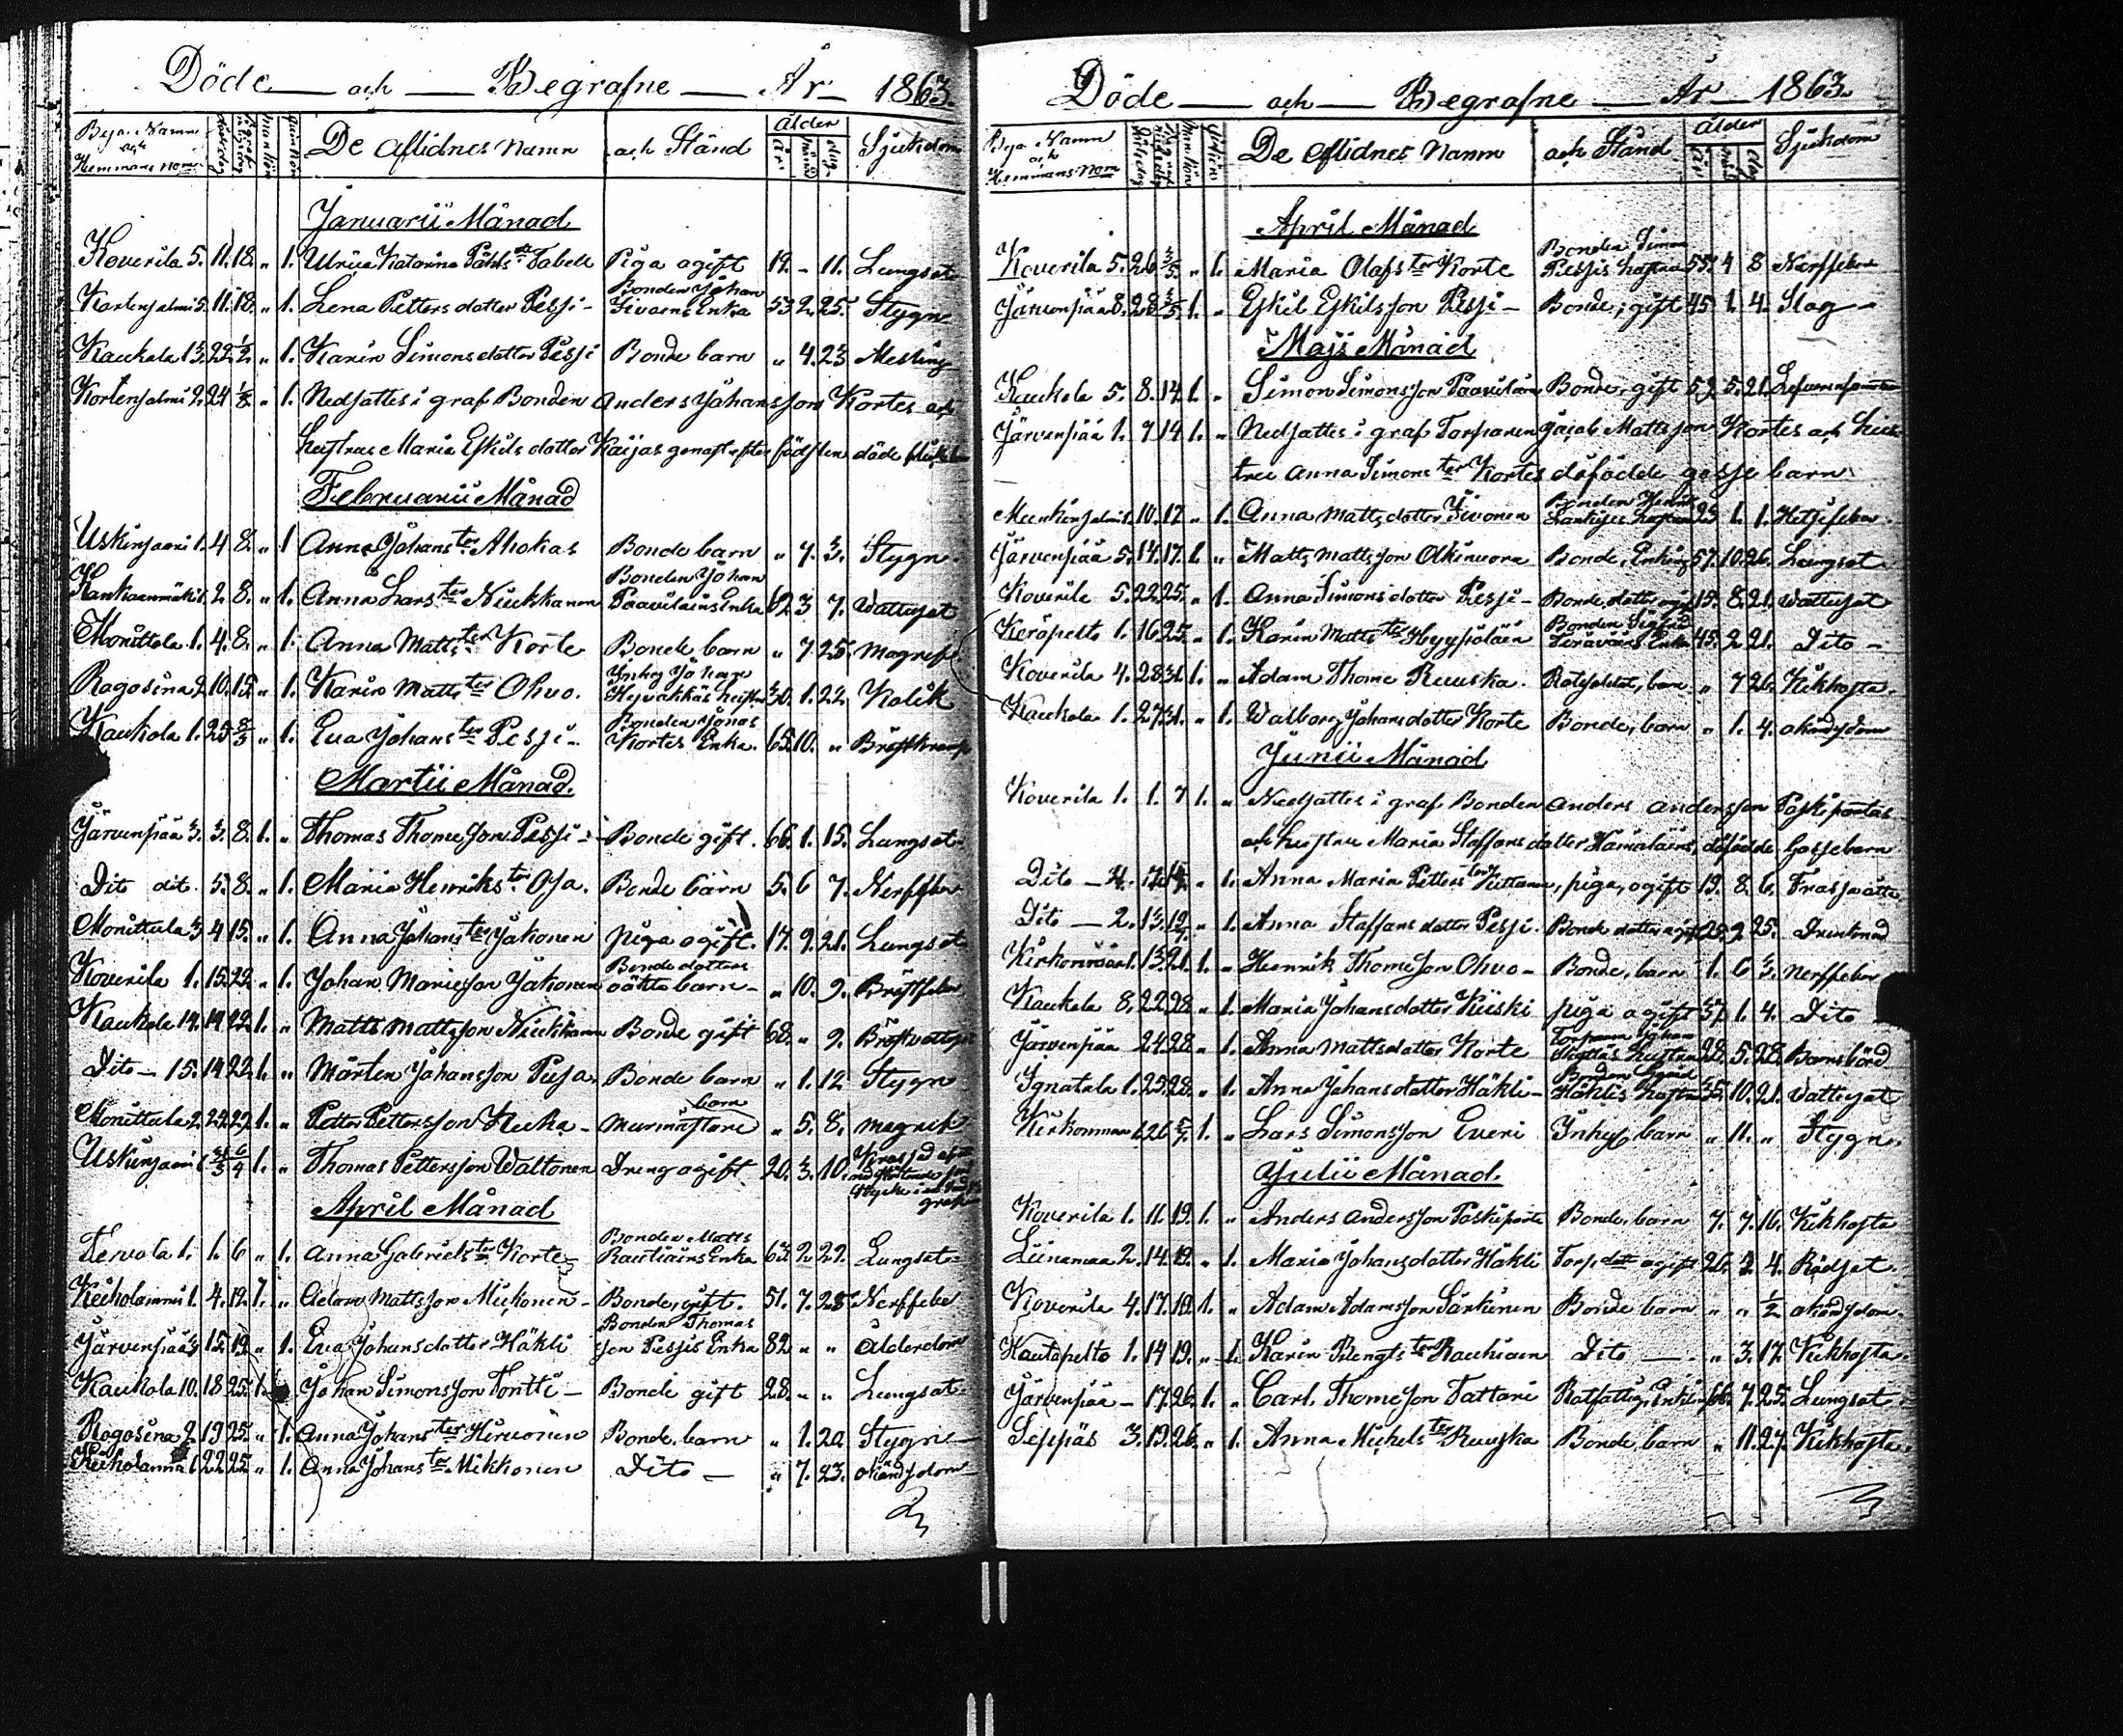 Döde — och — Begrafne — År — 1863.
Bya Namn och Hemmans nom De aflidnes Namn och Stånd ålder år månad dag Sjukdom
Januarii Månad
Koverila 5. 11. 18. " 1. Ulrica Katarina Påhls Tabell Piga ogift 19. - 11. Lungsot
Kortensalmi 5. 11. 18. " 1. Lena Petters dotter Pessi - Bonden Johan Sivoens Enka 53 2. 25. Stygn
Kaukola 13. 22. 1/2. " 1. Karin Simons dotter Pessi Bonde barn " 4. 23 Messling
Kortensalmi 2. 24 " 1. Nedsattes i graf Bonden Anders Johansson Kortes och
hustrus Maria Eskils dotter Kaijas genast efter födslen döde
Februarii Månad
Uskinjaani 1. 4 8. " 1 Anna Johans ter Ahokas Bonde barn " 7. 3. Stygn.
Kankaanmäki 1. 2. 8. " 1. Anna Lars ter Niukkanen Bonden Johan Paavilains Enka 62 3 7. Wattusot
Monittula 1. 4. 8. " 1. Anna Matts ter Korte Bonde barn " 7 25. Magref.
Rogosina 2. 10. 15. " 1. Karin Matts ter Ohvo. Inhys Johan hustru 30. 1. 22. Kolik
Kaukola 1. 25 8/3 " 1. Eva Johans ter Pessi - Bonden Jonas Kortes Enka. 65. 10. " Bröstkramp
Martii Månad.
Järvenpää 3. 3. 8. 1. " Thomas Thomesson Pessi - Bonde gift. 66. 1. 15. Lungsot
Dito dito. 5. 8. " 1. Maria Henriks tr Oja. Bonde barn 5. 6 7. Nerffeber
Monittula 3 4 15. " 1. Anna Johans ter Jakonen piga ogift. 17. 9. 21. Lungsot
Koverila 1. 15. 22. " 1. Johan Mariesson Jakonen Bonde dotters oäkta barn - " 10. 9. Bröstfeber
Kaukola 14. 14 22. 1. " Matts Mattsson Niukkanen Bonde gift 68. " 9. Bröstvattsot
Dito - 15. 14 22. 1. " Mårten Johansson Pusa. Bonde barn " 1. 12 Stygn
Monittula 2. 22. 22. 1. " Petter Pettersson Kuka - Murmästare barn " 5. 8. magrek
Uskinjaani 1. 6/4 1. " Thomas Pettersson Waltonen Dreng ogift 20. 3. 10.
April Månad
Tervola 1. 1. 6 " 1. Anna Gabriels ter Korte - Bonden Matts Rautiains Enka 63. 2. 22. Lungsot -
Kiiholanmi 1. 4. 12. 1. " Adam Mattsson Mickonen - Bonde, gift. 51. 7. 28. Nerffeber
Järvenpää 4 15. 19. " 1. Eva Johansdotter Häkli Bonden Thomas son Pessis Enka 82 " " ålderdom
Kaukola 10. 18 25. 1. Johan Simonsson Tontti - Bonde gift 28. " " Lungsot -
Rogosina 2. 19 25. " 1. Anna Johans ter Hirvonen Bonde barn " 1. 20 Stygn -
Kiiholanmi 1. 22 25. " 1. Anna Johans ter Mikkonen Dito - " 7. 23. okänd sjdom -
Döde — och — Begrafne — År — 1863.
Bya Namn och Hemmans Nom De aflidnes Namn och Stånd ålder år månad dag Sjukdom
April Månad
Koverila 5. 26 3/5. " 1. Maria Olafs ter Korte Bonden Simon Pessis hustru 55. 4 8 Nerffeber
Järvenpää 8. 28 3/5. 1. " Eskil Eskilsson Pessi - Bonde, gift 45 1. 4. Slag -
Maji Månad
Kaukola 5. 8. 14. 1. " Simon Simonsson Paavilainen Bonde, gift 59. 5. 21.
Järvenpää 1. 9 14. 1. " Nedsattes i graf Torparen Jacob Mattsson Kortes och hus
trus Anna Simons ter Kortes döfödde gosse barn
1. 10. 17 " 1. Anna Matts dotter Sivonen Bonden hustru 23 1. 1. Hetsfeber.
Järvenpää 5. 14. 17. 1. " Matts Mattsson Olkinuora Bonde, Enkling 57. 10. 26. Lungsot
Koverila 5. 22. 25. " 1. Anna Simons dotter Pessi - Bonde, dotter ogift 15. 8. 21. Wattusot
Keröpelto 1. 16 25. " 1. Karin Matts ter Hyypöläin Bonden Sigfrid Enka 45. 2 21. Dito -
Koverila 4. 28 31. 1. " Adam Thome Ruuska. barn " 7 26. Kikhosta.
Kaukola 1. 27 31. " 1. Walborg Johansdotter Korte Bonde, barn " 1. 4. okänd sjdom
Junii Månad
Koverila 1. 1. 7 1. " Nedsattes i graf Bonden Anders Andersson Paskipartas
och hustru Maria Staffans dotter Hämäläins, döfödde Gossebarn
Dito - 4. " 1. Anna Maria Petters ter Kuttanen, piga, ogift 19. 8. 6.
Dito — 2. 13. " 1. Anna Staffans dotter Pessi. Bonde dotter ogift 25. 2 25. Drunknad
1. 13. 21. 1. " Henrik Thomesson Ohvo - Bonde, barn 1. 6 3. nerffeber
Kaukola 8. 22. 28. " 1. Maria Johansdotter Kiiski piga ogift 37. 1. 4. Dito
Järvenpää 24. 28. " 1. Anna Mattsdotter Korte Torparen Johan hustru 28. 5. 28. Barnsbörd
Ignatala 1. 25. 28. " 1. Anna Johansdotter Häkli - Bonden Häklis hustru 35. 10. 21. Wattusot
Kirkonmaa 1. 26 1. " Lars Simonsson Everi Inhys barn " 11. " Stygn.
Julii Månad.
Koverila 1. 11. 19. 1. " Anders Andersson Paskiparta Bonde, barn 7. 7. 16. Kikhosta
Liinamaa 2. 14. 19. " 1. Maria Johansdotter Häkli Torp. dott ogift 26. 2 4. Rödsot.
Koverila 4. 17. 19. 1. " Adam Adamsson Särkinen Bonde barn " " 1/2 okänd sjdom.
Hautapelto 1. 14 19. " 1. Karin Bengts ter Raukiain Dito — " 3. 17. Kikhosta.
Järvenpää - 17. 26. 1. " Carl Thomesson Tattari Rotfattig, Enkling 66. 7. 25. Lungsot
Seppäs 3. 19. 26. " 1. Anna Michels ter Ruuska Bonde, barn " 11. 27. Kikhosta.